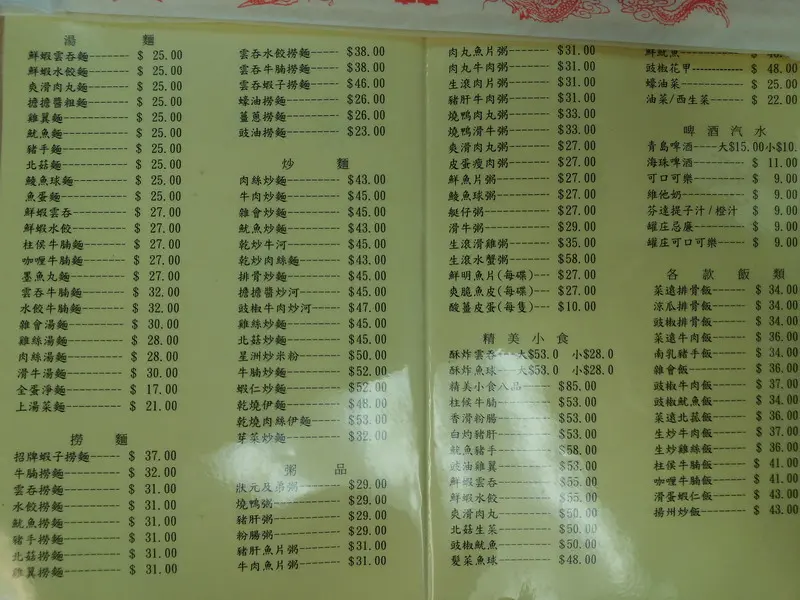 湯 麵
鮮蝦雲吞麵------- $ 25.00
鮮蝦水餃麵------- $ 25.00
爽滑肉丸麵------- $ 25.00
擔擔醬粗麵------- $ 25.00
雞翼麵---------- $ 25.00
魷魚麵---------- $ 25.00
豬手麵---------- $ 25.00
北菇麵---------- $ 25.00
鯪魚球麵-------- $ 25.00
魚蛋麵---------- $ 25.00
鮮蝦雲吞-------- $ 27.00
鮮蝦水餃-------- $ 27.00
柱侯牛腩麵------ $ 27.00
咖喱牛腩麵------ $ 27.00
墨魚丸麵-------- $ 27.00
雲吞牛腩麵------ $ 32.00
水餃牛腩麵------ $ 32.00
雜會湯麵-------- $ 30.00
雞絲湯麵-------- $ 28.00
肉絲湯麵-------- $ 28.00
滑牛湯麵-------- $ 30.00
全蛋淨麵-------- $ 17.00
上湯菜麵-------- $ 21.00
撈 麵
招牌蝦子撈麵----- $ 37.00
牛腩撈麵-------- $ 32.00
雲吞撈麵-------- $ 31.00
水餃撈麵-------- $ 31.00
魷魚撈麵-------- $ 31.00
豬手撈麵-------- $ 31.00
北菇撈麵-------- $ 31.00
雞翼撈麵-------- $ 31.00
雲吞水餃撈麵----- $38.00
雲吞牛腩撈麵----- $38.00
雲吞蝦子撈麵----- $46.00
蠔油撈麵-------- $26.00
薑蔥撈麵-------- $26.00
豉油撈麵-------- $23.00
炒 麵
肉絲炒麵-------- $43.00
牛肉炒麵-------- $45.00
雜會炒麵-------- $45.00
魷魚炒麵-------- $43.00
乾炒牛河-------- $45.00
乾炒肉絲麵------ $43.00
排骨炒麵-------- $45.00
擔擔醬炒河------ $45.00
豉椒牛肉炒河---- $47.00
雞絲炒麵-------- $45.00
北菇炒麵-------- $45.00
星洲炒米粉------ $50.00
牛腩炒麵-------- $52.00
蝦仁炒麵-------- $52.00
乾燒伊麵-------- $48.00
乾燒肉絲伊麵---- $53.00
芽菜炒麵-------- $32.00
粥 品
狀元及第粥------ $29.00
燒鴨粥---------- $29.00
豬肝粥---------- $29.00
粉腸粥---------- $29.00
豬肝魚片粥------ $31.00
牛肉魚片粥------ $31.00
肉丸魚片粥------ $31.00
肉丸牛肉粥------ $31.00
生滾肉片粥------ $31.00
豬肝牛肉粥------ $31.00
燒鴨肉丸粥------ $33.00
燒鴨滑牛粥------ $33.00
爽滑肉丸粥------ $27.00
皮蛋瘦肉粥------ $27.00
鮮魚片粥-------- $27.00
鯪魚球粥-------- $27.00
艇仔粥---------- $27.00
滑牛粥---------- $29.00
生滾滑雞粥------ $35.00
生滾水蟹粥------ $58.00
鮮明魚片(每碟)--- $27.00
爽脆魚皮(每碟)--- $27.00
酸薑皮蛋(每隻)--- $10.00
精 美 小 食
酥炸雲吞---大$53.0 小$28.0
酥炸魚球---大$53.0 小$28.0
精美小食八品----- $85.00
柱侯牛腩-------- $53.00
香滑粉腸-------- $53.00
白灼豬肝-------- $53.00
魷魚豬手-------- $58.00
豉油雞翼-------- $53.00
鮮蝦雲吞-------- $55.00
鮮蝦水餃-------- $55.00
爽滑肉丸-------- $50.00
北菇生菜-------- $50.00
豉椒魷魚-------- $50.00
髮菜魚球-------- $48.00
鮮魷魚
豉椒花甲------------ $ 48.00
蠔油菜------------- $ 25.00
油菜/西生菜-------- $ 22.00
啤 酒 汽 水
青島啤酒----大$15.00小$10.
海珠啤酒---------- $ 11.00
可口可樂---------- $ 9.00
維他奶------------ $ 9.00
芬達提子汁/橙汁 $ 9.00
罐庄忌廉---------- $ 9.00
罐庄可口可樂------ $ 9.00
各 款 飯 類
菜遠排骨飯------- $ 34.00
涼瓜排骨飯------- $ 34.00
豉椒排骨飯------- $ 34.00
菜遠牛肉飯------- $ 36.00
南乳豬手飯------- $ 34.00
雜會飯---------- $ 36.00
豉椒牛肉飯------- $ 37.00
豉椒魷魚飯------- $ 34.00
菜遠北菇飯------- $ 36.00
生炒牛肉飯------- $ 37.00
生炒雞絲飯------- $ 36.00
柱侯牛腩飯------- $ 41.00
咖喱牛腩飯------- $ 41.00
滑蛋蝦仁飯------- $ 43.00
揚州炒飯-------- $ 43.00